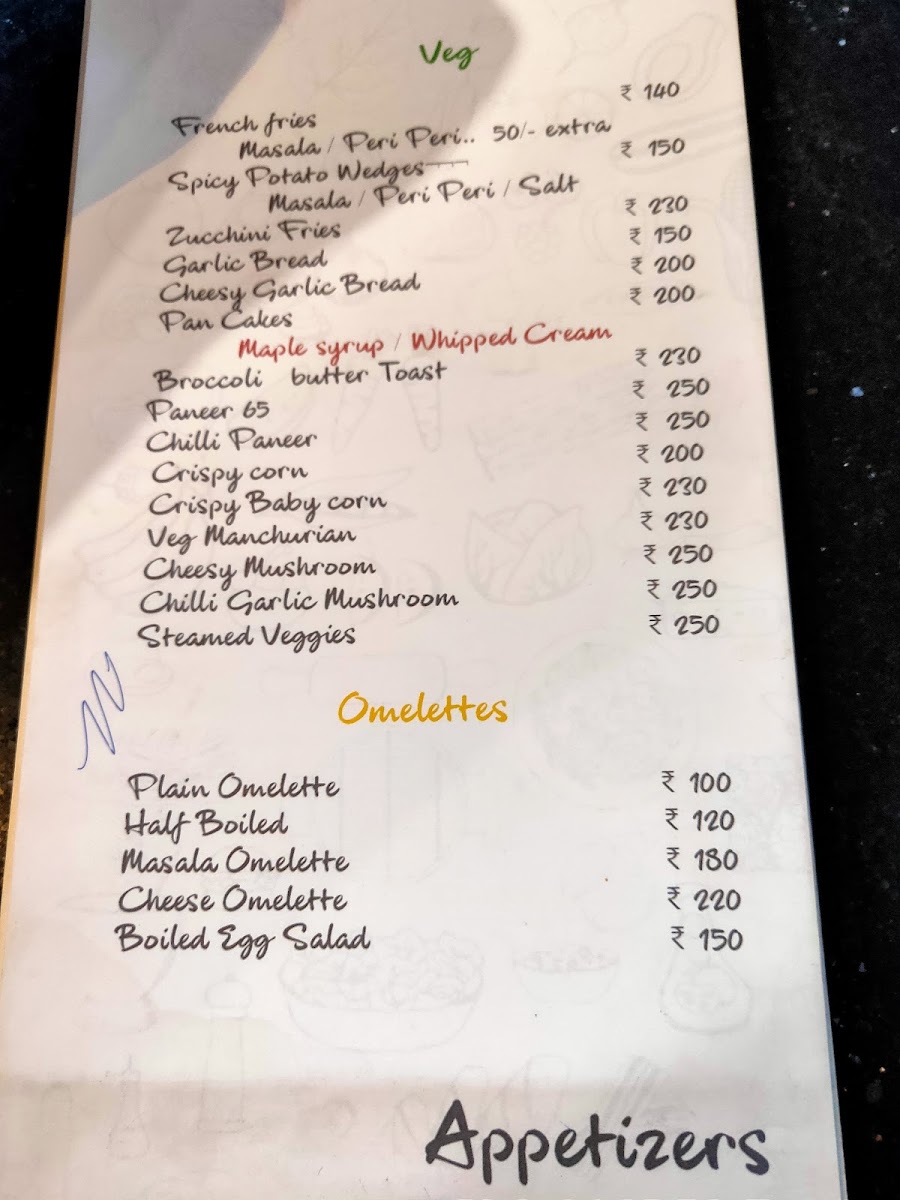 Veg
French fries ₹ 140
Masala / Peri Peri.. 50/- extra
Spicy Potato Wedges ₹ 150
Masala / Peri Peri / Salt
Zucchini Fries ₹ 230
Garlic Bread ₹ 150
Cheesy Garlic Bread ₹ 200
Pan Cakes ₹ 200
Maple syrup / Whipped Cream
Broccoli butter Toast ₹ 230
Paneer 65 ₹ 250
Chilli Paneer ₹ 250
Crispy corn ₹ 200
Crispy Baby corn ₹ 230
Veg Manchurian ₹ 230
Cheesy Mushroom ₹ 250
Chilli Garlic Mushroom ₹ 250
Steamed Veggies ₹ 250
Omelettes
Plain Omelette ₹ 100
Half Boiled ₹ 120
Masala Omelette ₹ 180
Cheese Omelette ₹ 220
Boiled Egg Salad ₹ 150
Appetizers